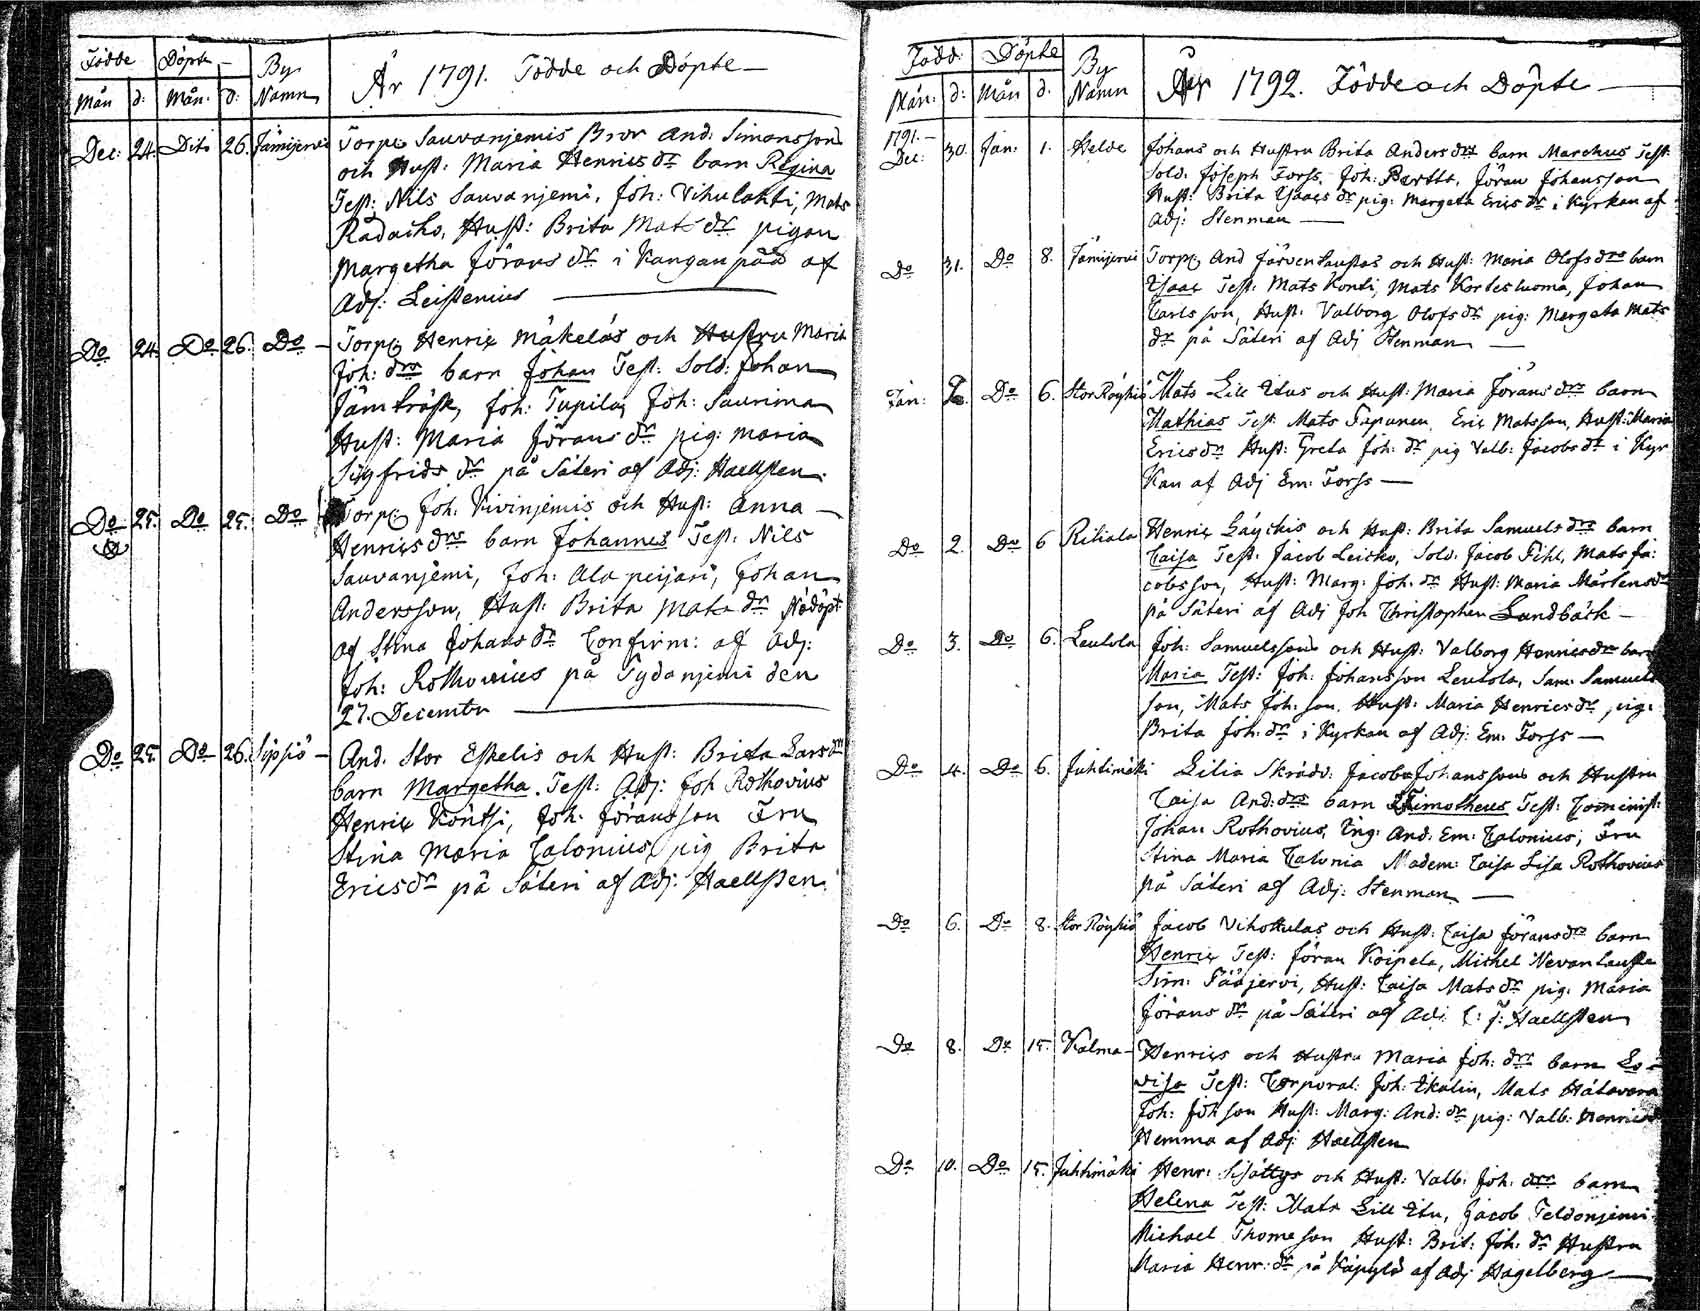 Födde Döpte — By Namn
Mån d: Mån. d:
År 1791. Födde och Döpte —
Dec: 24. Dito 26. Jämijervi Torp: Sauvanjemis Bror And: Simonsson
och Hust: Maria Henrics dr barn Regina
Test: Nils Sauvanjemi, Joh: Vihulahti, Mats
Rådacko, Hust: Brita Mats dr pigan
Margetha Jörans dr i Kangan på af
Adj: Leistenius —
Do 24. Do 26. Do — Torp: Henric Mäkeläs och Hustru Maria
Joh: drs barn Johan Test: Sold: Johan
Jämträsk, Joh: Tupila, Joh: Saurima
Hust: Maria Jörans dr pig: Maria
Sigfrids dr på Säteri af Adj: Haellsten.
Do 25. Do 25. Do Torp: Joh: Vivinjemis och Hust: Anna —
Henrics drs barn Johannes Test: Nils
Sauvanjemi, Joh: Ala peijari, Johan
Andersson, Hust: Brita Mats dr Nödöpt
af Stina Johans dr Confirm: af Adj:
Joh: Rothovius på Sydanjemi den
27. Decembr —
Do 25. Do 26. Sipsiö — And. Stor Eskelis och Hust: Brita Lars dr
barn Margetha. Test: Adj: Joh Rothovius
Henric Köntsi, Joh: Jöransson Fru
Stina Maria Calonius, pig Brita
Erics dr på Säteri af Adj: Haellsten.
Född Döpte By Namn
Mån: d: Mån d.
År 1792. Födde och Döpte —
1791. —
Dec: 30. Jan: 1. Kelde Johans och Hustru Brita Anders drs barn Marchus Test:
Sold. Joseph Forss, Joh: Bertts, Jöran Johansson
Hust: Brita Ysaacs dr pig: Margeta Erics dr i Kyrkan af
Adj: Stenman —
Do 31. Do 8. Jämijervi Torp: And Järvenlaustas och Hust: Maria Olofs drs barn
Ysaac Test: Mats Konti, Mats Kortesluoma, Johan
Carlsson, Hust: Valborg Olofs dr pig: Margeta Mats
dr på Säteri af Adj Stenman —
Jan: 2. Do 6. Stor Röyhiö Mats Lill Utus och Hust: Maria Jörans drs barn
Mathias Test: Mats Tapunen, Eric Matsson, Hust: Maria
Erics dr Hust: Greta Joh: dr pig Valb: Jacobs dr i Kyr
Kan af Adj Em: Forss —
Do 2. Do 6 Riliala Henric Läyckis och Hust: Brita Samuels drs barn
Caisa Test: Jacob Leicko, Sold. Jacob Fihl, Mats Ja:
cobsson, Hust: Marg: Joh: dr Hust: Maria Mårtens dr
på Säteri af Adj Joh Christophen Lundbäck —
Do 3. Do 6. Leutola Joh: Samuelssons och Hust: Valborg Henrics drs barn
Maria Test: Joh: Johansson Leutola, Sam: Samuels
son, Mats Joh: son, Hust: Maria Henrics dr pig:
Brita Joh: dr i Kyrkan af Adj: Em: Forss —
Do 4. Do 6. Juhtimäki Lilia Skräd: Jacob Johanssons och Hustru
Caisa And: drs barn Timotheus Test: Comminist:
Johan Rothovius, Ing: And: Em: Calonius, Fru
Stina Maria Calonia Madem: Caisa Lisa Rothovius
på Säteri af Adj: Stenman —
Do 6. Do 8. Stor Röyhiö Jacob Vihottulas och Hust: Caisa Jörans drs barn
Henric Test: Jöran Koipela, Michel Nevanlausta
Sim: Pääjervi, Hust: Caisa Mats dr pig: Maria
Jörans dr på Säteri af Adj: C: J: Haellsten
Do 8. Do 15. Kalma — Henrics och Hustru Maria Joh: drs barn Lo=
visa Test: Corporal: Joh: Ekalin, Mats Hätavara
Joh: Johson Hust: Marg: And: dr pig: Valb: Henrics d
Hemma af Adj: Haellsten
Do 10. Do 15. Juhtimäki Henr: Sisättys och Hust: Valb: Joh: drs barn
Helena Test: Mats Lill Utu, Jacob Teldonjemi
Michael Thomeson Hust: Brit: Joh: dr Hustru
Maria Henr: dr på Käpylä af Adj Hagelberg —